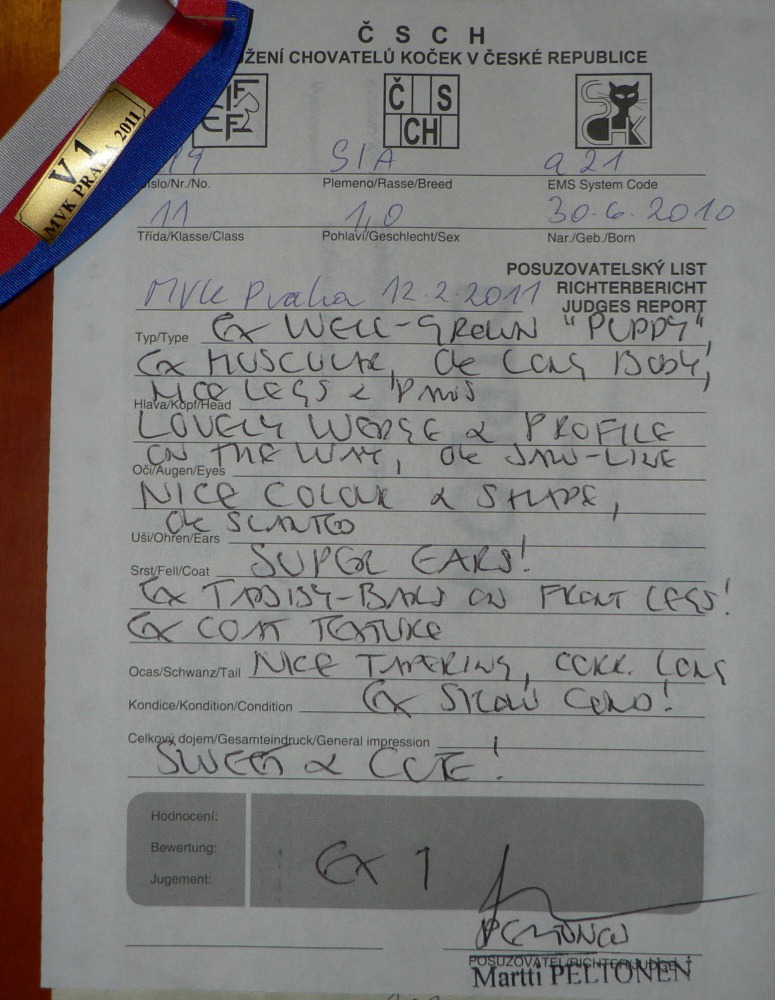 Č S C H
ŽENÍ CHOVATELŮ KOČEK V ČESKÉ REPUBLICE
FIFe
Č S CH
SCHK
V 1
MVK PRAHA 2011
SIA
a 21
íslo/Nr./No.
Plemeno/Rasse/Breed
EMS System Code
11
1,0
30.6.2010
Třída/Klasse/Class
Pohlaví/Geschlecht/Sex
Nar./Geb./Born
POSUZOVATELSKÝ LIST
RICHTERBERICHT
MVK Praha 12.2.2011
JUDGES REPORT
Typ/Type EX WELL-GROWN "PUPPY",
EX MUSCULAR, OK LONG BODY,
NICE LEGS & PAWS
Hlava/Kopf/Head
LOVELY WEDGE & PROFILE
ON THE WAY, OK JAW-LINE
Oči/Augen/Eyes
NICE COLOUR & SHAPE,
OK SLANTED
Uši/Ohren/Ears
SUPER EARS!
Srst/Fell/Coat
EX TABBY-BARS ON FRONT LEGS!
EX COAT TEXTURE
Ocas/Schwanz/Tail NICE TAPERING, CORR. LONG
Kondice/Kondition/Condition EX SHOW COND!
Celkový dojem/Gesamteindruck/General impression
SWEET & CUTE!
Hodnocení:
Bewertung:
Jugement:
EX 1
PELTONEN
POSUZOVATEL/RICHTER/JUDGE
Martti PELTONEN